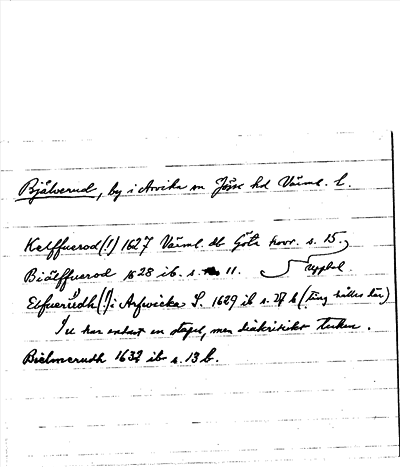 Bjälverud, by i Arvika sn Jösse hd Värml. l.
Kelffuerod (!) 1627 Värml. db Göta hovr. s. 15.
Biälffuerod 1628 ib. s. 11. Uppbl.
Elfuerudh (!) i Arfwicka S. 1629 ib s. 27 b (ting hålles där)
I u har endast en stapel, men diakritiskt tecken.
Bielwerudh 1632 ib s. 13 b.